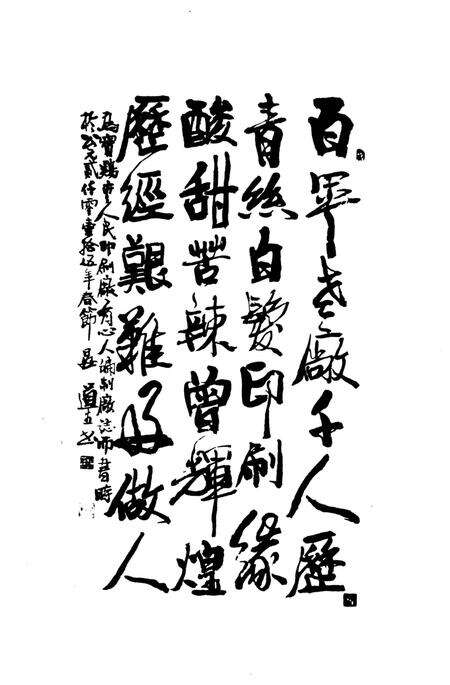 百年老廠千人歷
青絲白髮印刷緣
酸甜苦辣曾輝煌
歷經艱難好做人
為寶鷄市人民印刷廠有心人編制廠誌而書時
於公元貳仟零壹拾伍年春節 道五书